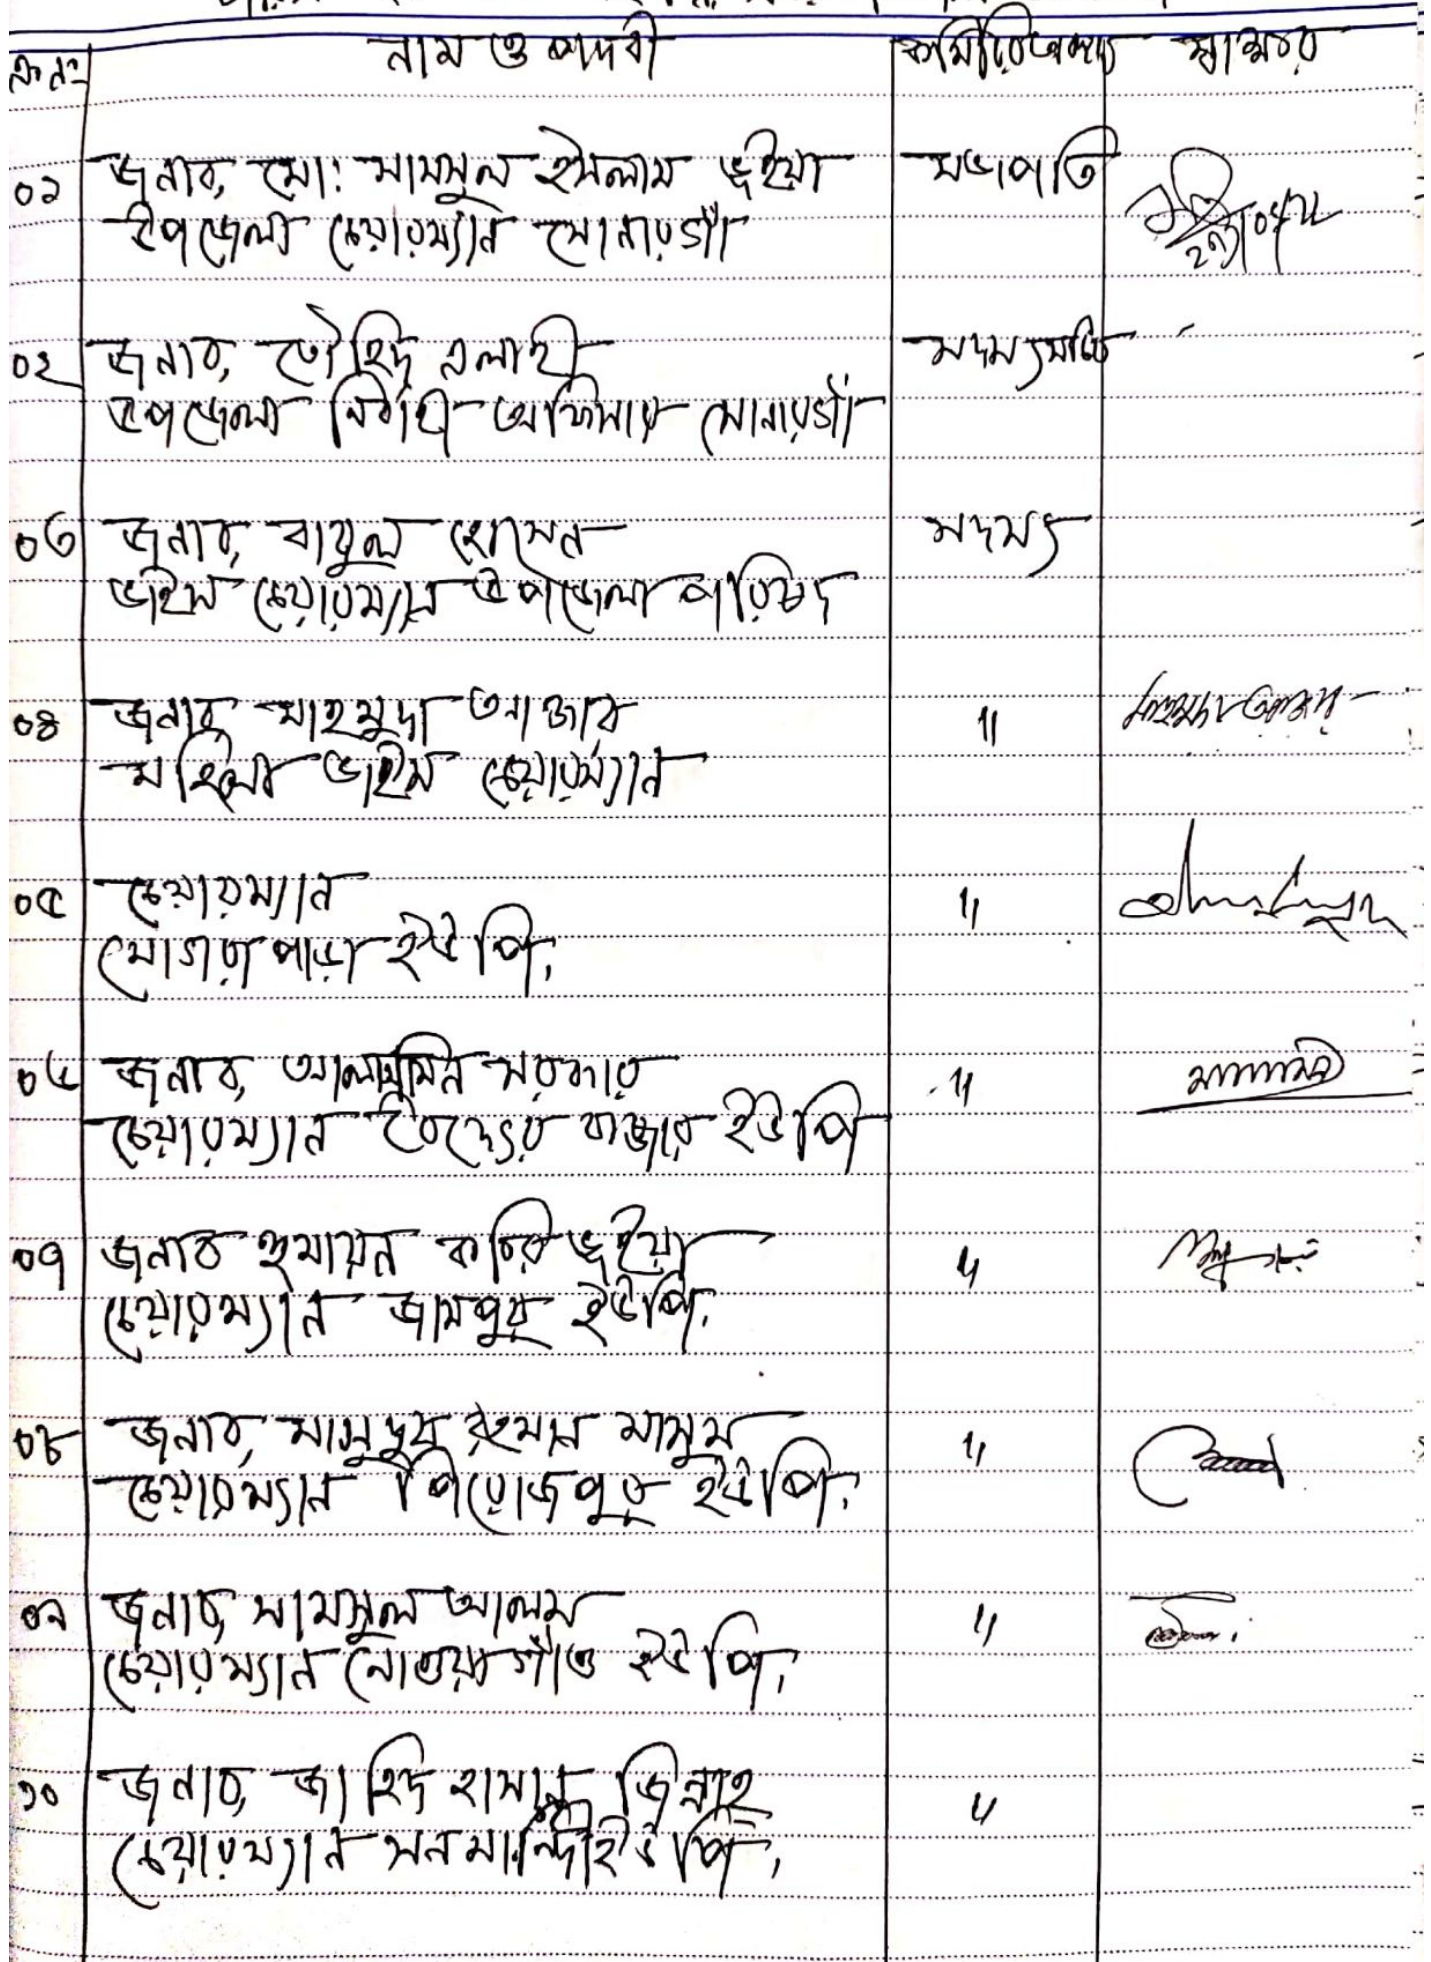 ক্র নং নাম ও পদবী কমিটিতে পদবী স্বাক্ষর
০১ জনাব, মো: সামসুল ইসলাম ভূইয়া সভাপতি
উপজেলা চেয়ারম্যান সোনারগাঁ
০২ জনাব, তৌহিদ এলাহী সদস্যসচিব
উপজেলা নির্বাহী অফিসার সোনারগাঁ
০৩ জনাব, বাবুল হোসেন সদস্য
ভাইস চেয়ারম্যান উপজেলা পরিষদ
০৪ জনাব মাহমুদা আক্তার ॥ মাহমুদা আক্তার
মহিলা ভাইস চেয়ারম্যান
০৫ চেয়ারম্যান ॥
মোগরাপাড়া ইউপি.
০৬ জনাব, আলআমিন সরকার ॥
চেয়ারম্যান বৈদ্যের বাজার ইউপি
০৭ জনাব হুমায়ন কবির ভূইয়া ॥
চেয়ারম্যান জামপুর ইউপি.
০৮ জনাব, মাসুদুর রহমান মাসুম ॥
চেয়ারম্যান পিরোজপুর ইউপি.
০৯ জনাব, সামসুল আলম ॥
চেয়ারম্যান নোওয়াগাঁও ইউপি.
১০ জনাব, জাহিদ হাসান জিন্নাহ ॥
চেয়ারম্যান সনমান্দি ইউপি.